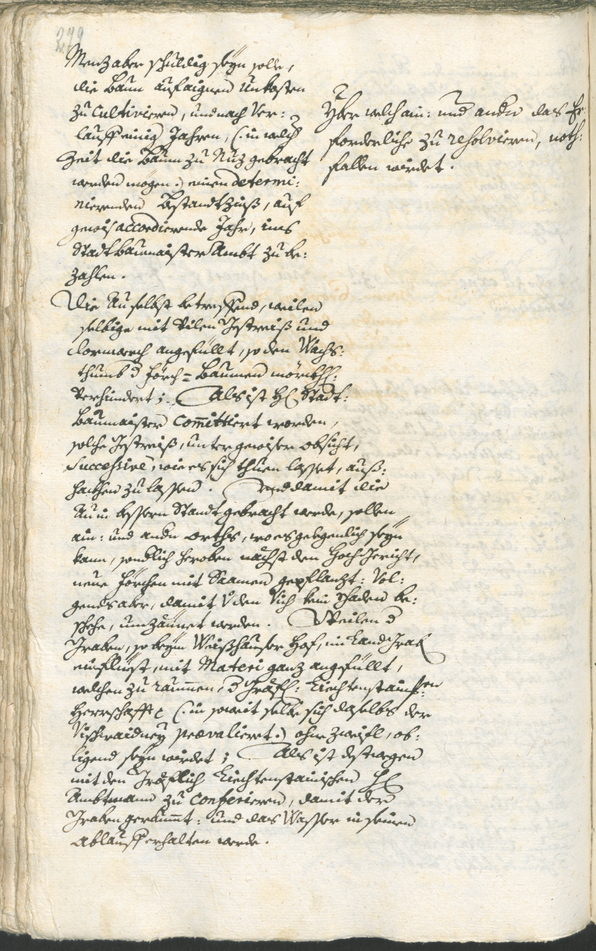 249
Mentz aber schuldig seyn solle,
die Baum auf aignen Unkosten
zu Cultivieren, und nach Ver:
lauff einig Jahren, (: in welch
Zeit die Baum zu Nuz gebracht
werden mögen :) einen determi:
nierenden Bestandt Zinß, auf
gewis accordierende Jahr, ins
Stadt Baumaister Ambt zu be:
zahlen.
Die Au selbst betreffend, weilen
selbige mit vilen Gestreiß und
dornwerch angefüllt, so den Wachs:
thumb d Förch= Bäumen
Verhindert; Als ist H Stadt:
Baumaister Committiert worden,
solche Gestreiß, unter gewiser obsicht,
Successive, wie es sich thuen lasset, auß:
hackhen zu lassen. Und damit die
Au in bessern Standt gebracht werde, sollen
ain: und andn orths, wo es gelegenlich seyn
kann, sondlich heroben nächst den Hoch Gericht,
neue Förchen mit Saamen gepflanzt: Vol:
gends aber, damit Von den Vich kein schaden be:
schehe, umzäunet werden. Weilen d
Graben, so beym Weißhauser Hof, im Land Grab
einflüest, mit Materi ganz angefüllt,
welchen zu raumen, d Gräfl: Liechtenstainsen
Herrschafft (: in soweit selbe sich daselbs der
Vischwaidney praevalieret :) ohne Zweifl, ob:
ligend seyn würdet; Als ist destwegen
mit den Gräflich Liechtenstainischen H
Ambtmann zu Conferieren, damit der
Graben geraumt: und das Wasser in seinen
Ablauff erhalten werde.
Yber welch ain: und andn das Er:
forderliche zu resolvieren, noth:
fallen würdet.